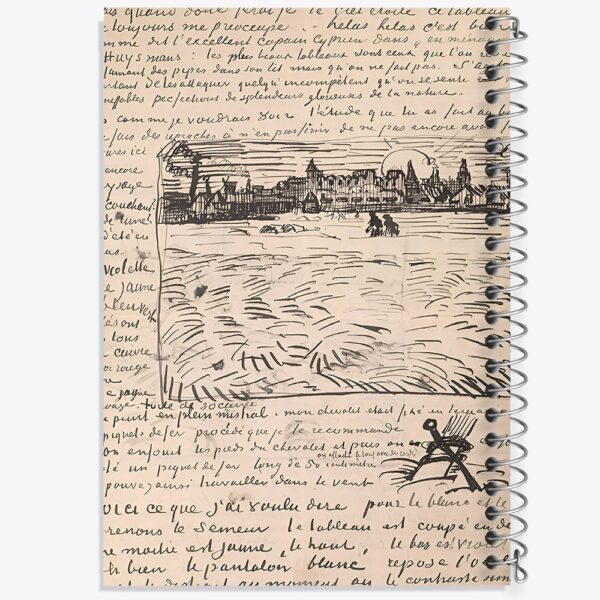 quand donc ferais je le ciel étoilé ce tableau
toujours me préoccupe . - helas helas c'est bien
mme dit l'excellent copain Cyprien dans „en ménage
Huysmans : les plus beaux tableaux sont ceux que l'on rêve
fumant des pipes dans son lit mais qu'on ne fait pas. S'agit
pourtant de les attaquer quelqu'incompétent qu'on se sente vis
ineffables perfections de splendeurs glorieuses de la nature.
comme je voudrais voir l'étude que tu as fait au b
fais des reproches à n'en pas finir de ne pas encore avoir f
ures ici
encore
ysage
couchant
de lune?
d'été en
us.
violette
jaune
bleu vert
és ont
tons
cuivre
or rouge
jaune
rouge. toile de 30 carrée
peint en plein mistral. mon chevalet était fixé en terre a
piquets de fer procédé que je te recommande
on enfouit les pieds du chevalet et puis on
on attache le tout avec des cordes
té un piquet de fer long de 50 centimètres
pouvez ainsi travailler dans le vent
voici ce que j'ai voulu dire pour le blanc et le
prenons le Semeur le tableau est coupé en de
ne moitié est jaune, le haut, le bas est viol
h bien le pantalon blanc repose l'oe
et le distrait au moment où le contraste sim